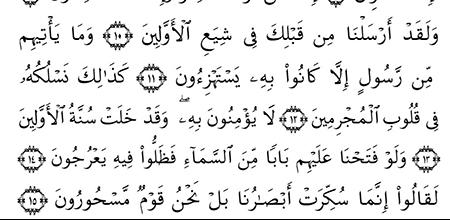 وَلَقَدْ أَرْسَلْنَا مِن قَبْلِكَ فِى شِيَعِ ٱلْأَوَّلِينَ ﴿١٠﴾ وَمَا يَأْتِيهِم
مِّن رَّسُولٍ إِلَّا كَانُوا۟ بِهِۦ يَسْتَهْزِءُونَ ﴿١١﴾ كَذَٰلِكَ نَسْلُكُهُۥ
فِى قُلُوبِ ٱلْمُجْرِمِينَ ﴿١٢﴾ لَا يُؤْمِنُونَ بِهِۦ ۖ وَقَدْ خَلَتْ سُنَّةُ ٱلْأَوَّلِينَ
﴿١٣﴾ وَلَوْ فَتَحْنَا عَلَيْهِم بَابًا مِّنَ ٱلسَّمَآءِ فَظَلُّوا۟ فِيهِ يَعْرُجُونَ ﴿١٤﴾
لَقَالُوٓا۟ إِنَّمَا سُكِّرَتْ أَبْصَٰرُنَا بَلْ نَحْنُ قَوْمٌ مَّسْحُورُونَ ﴿١٥﴾